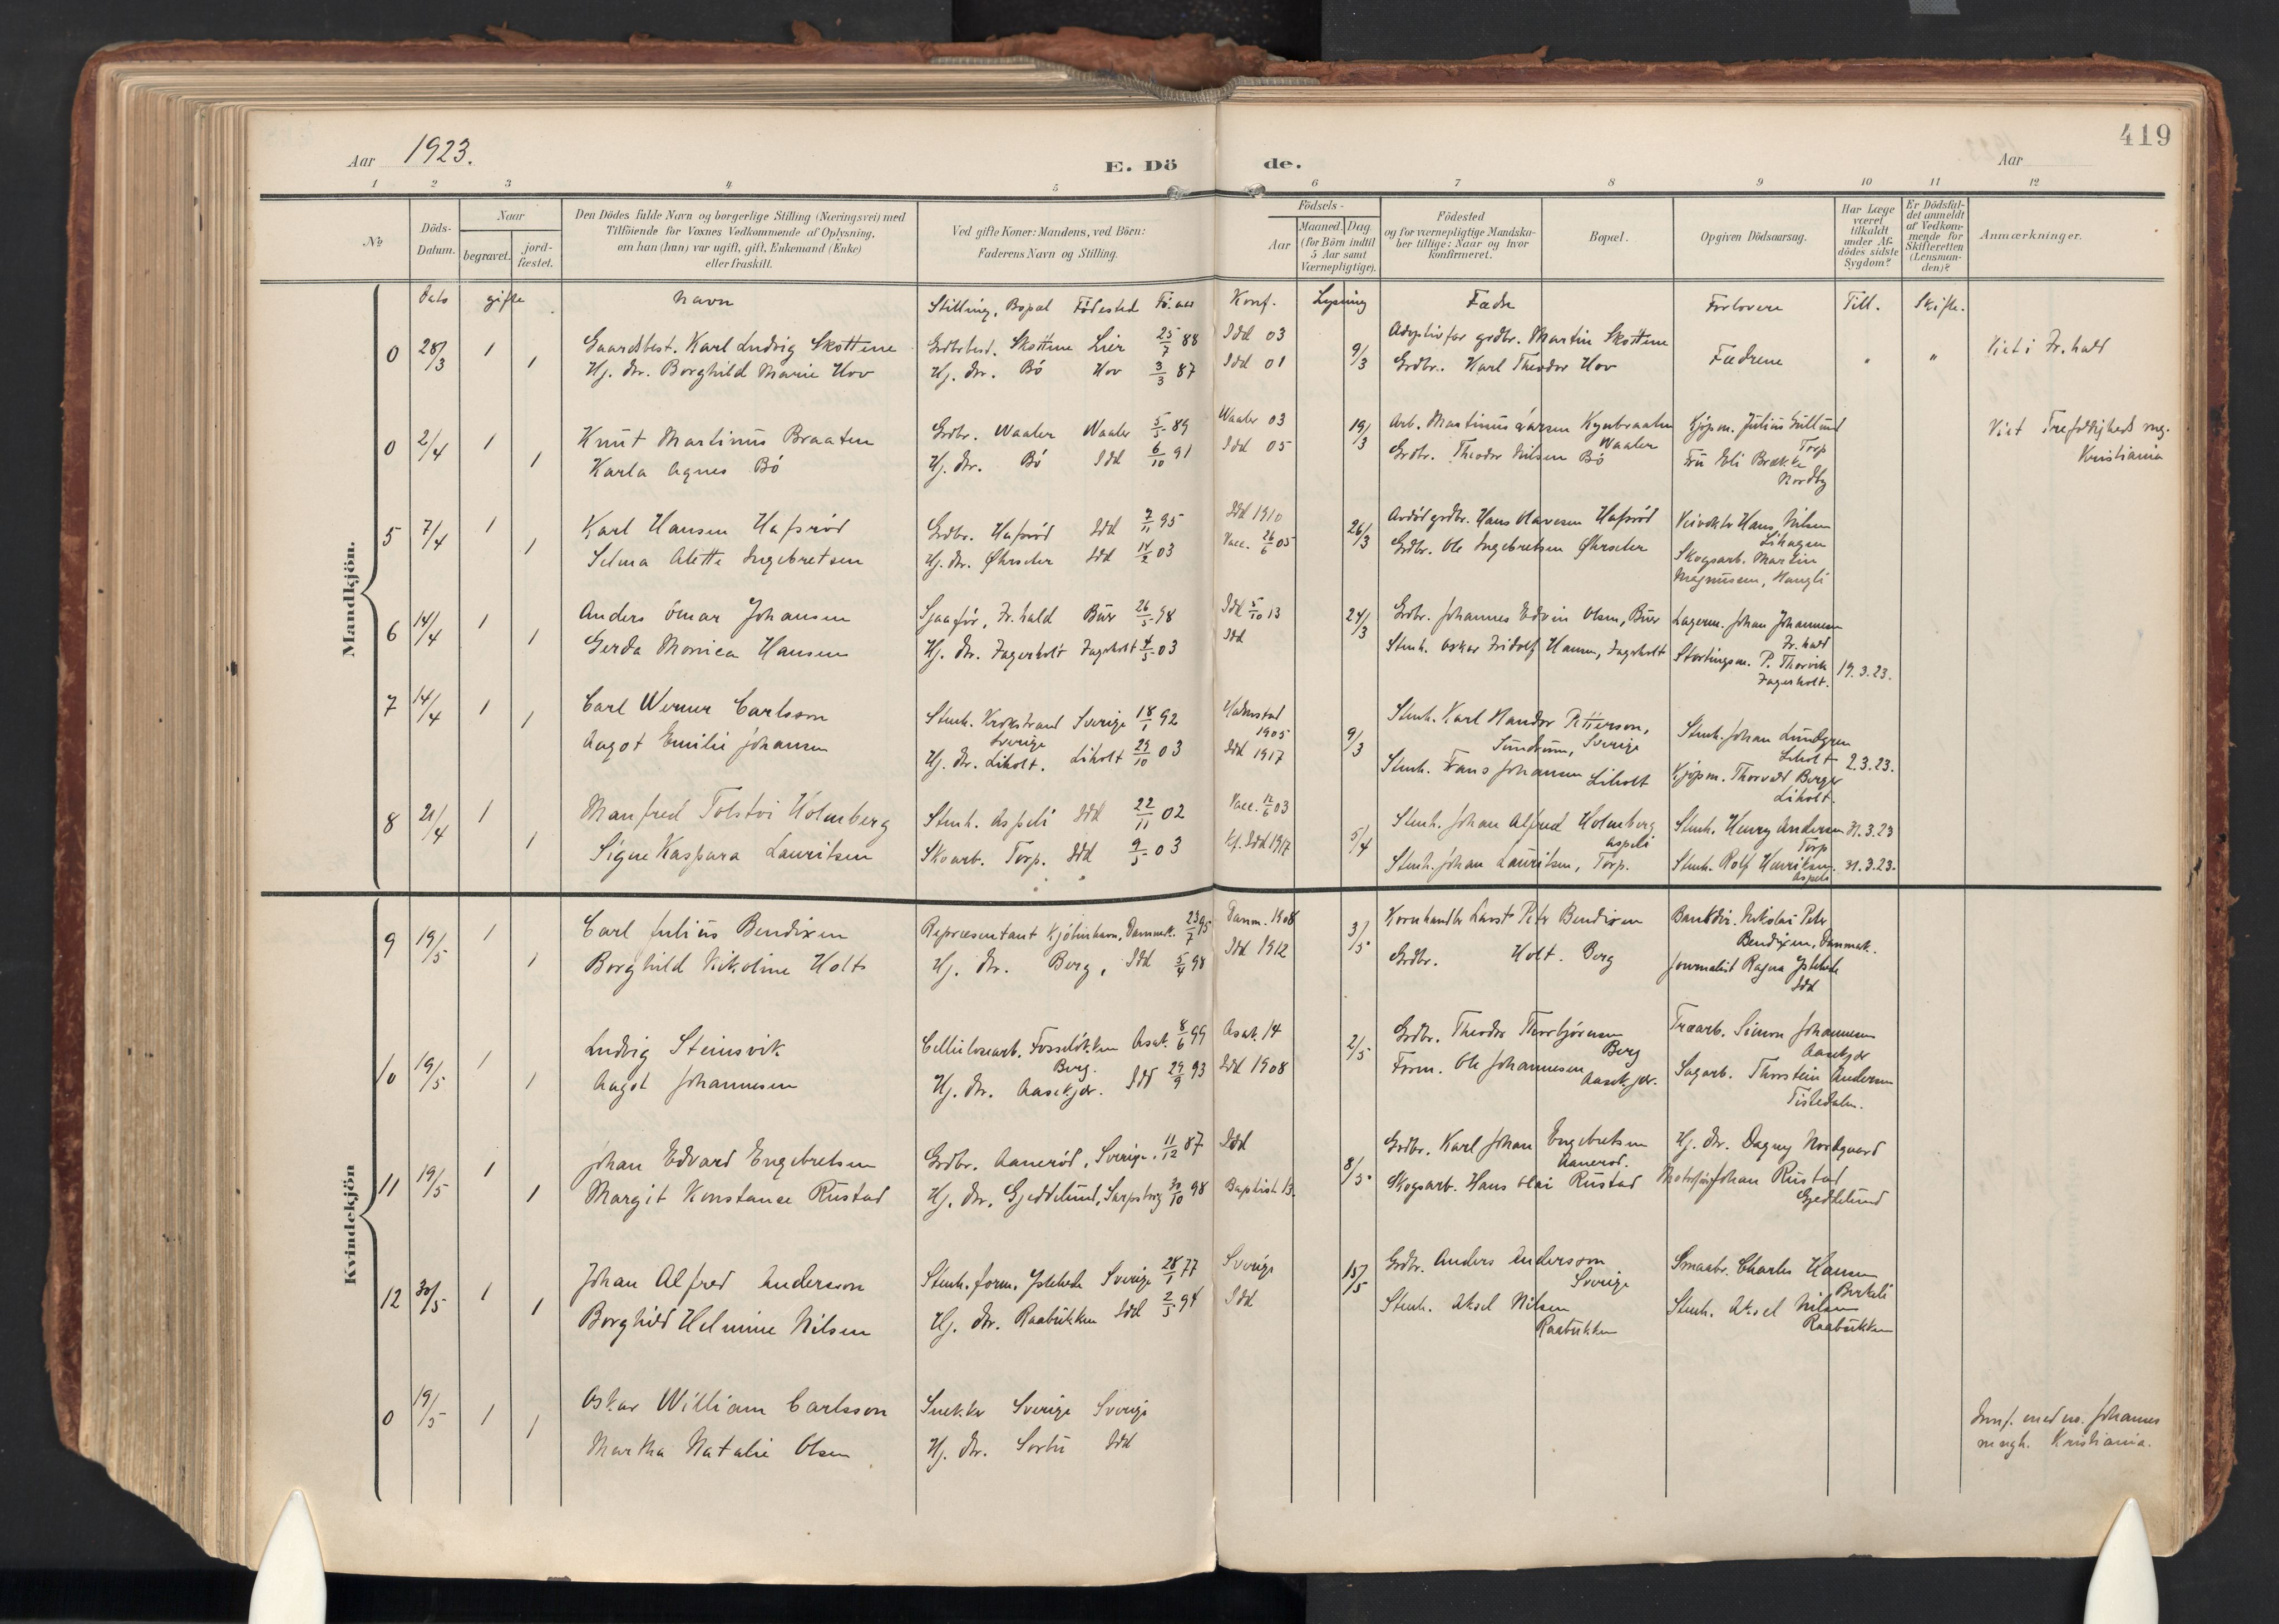 419
Aar 1923.
E. Dö
de.
Aar
1 2 3 4 5 6 7 8 9 10 11 12
№
Döds-Datum.
Naar
begravet.
jord-fæstet.
Den Dödes fulde Navn og borgerlige Stilling (Næringsvei) med
Tilföiende for Voxnes Vedkommende af Oplysning,
om han (hun) var ugift, gift, Enkemand (Enke)
eller fraskilt.
Ved gifte Koner: Mandens, ved Börn:
Faderens Navn og Stilling.
Födsels-
Aar
Maaned. Dag
(for Börn indtil
5 Aar samt
Værnepligtige).
Födested
og for værnepligtige Mandska-
ber tillige: Naar og hvor
konfirmeret.
Bopæl.
Opgiven Dödsaarsag.
Har Læge
været
tilkaldt
under Af-
dödes sidste
Sygdom?
Er Dödsfal-
det anmeldt
af Vedkom-
mende for
Skifteretten
(Lensman-
den)?
Anmærkninger.
Mandkjön.
Kvindekjön
Dato gifte Navn Stilling, Bopæl Födested Fö. aar Konf. Lysning Fædre Forlovere Till. Skifte.
0 28/3 1 Gaardbest. Karl Ludvig Skottene Grdbrbest. Skottene Lier 25/7 88 Idd 03 9/3 Adoptivfar grdbr. Martin Skottene Fædrene " " Viet i Fr.hald
1 Hj. dtr. Borghild Marie Hov Hj. dtr. Bö Hov 3/3 87 Idd 01 Grdbr. Karl Theodor Hov
0 2/4 1 Knut Martinus Braaten Grdbr. Waaler Waaler 5/5 89 Waaler 03 19/3 Arb. Martinus Kynbraaten Waaler Kjöpm. Julius Gullund Torp Viet Trefoldigheds
1 Karla Agnes Bö Hj. dtr. Bö Idd 6/10 91 Idd 05 Grdbr. Theodor Nilsen Bö Fru Eli Brække Nordby Kristiania
5 7/4 1 Karl Hansen Hafsröd Grdbr. Hafsröd Idd 7/11 95 Idd 1910 26/3 Avdöd grdbr. Hans Olavesen Hafsröd Hans Nilsen Lihagen
1 Selma Alette Ingebretsen Hj. dtr. Öhrseter Idd 14/2 03 Vacc. 26/6 05 Grdbr. Ole Ingebretsen Öhrseter Skogsarb. Martin
Magnusen, Haugli
6 14/4 1 Anders Omar Johansen Sjaaför, Fr.hald Buer 26/5 98 Idd 5/10 13 24/3 Grdbr. Johannes Edvin Olsen, Buer Lagerm. Johan Johannesen Fr.hald
1 Gerda Monica Hansen Hj. dtr. Fagerholt Fagerholt 4/5 03 Idd Stenh. Oskar Fridolf Hansen, Fagerholt Stortingsm. P. Thorvik Fagerholt. 19.3.23.
7 14/4 1 Carl Werner Carlsson Stenh. Krokstrand Sverige Sverige 18/1 92 Halmstad 1905 9/3 Stenh. Karl Handor Petterson, Sverige Stenh. Johan Lundgren Liholt 2.3.23.
1 Aagot Emilie Johansen Hj. dtr. Liholt. Liholt 29/10 03 Idd 1917 Stenh. Frans Johansen Liholt Kjöpm. Thorvald Berger Liholt.
8 21/4 1 Manfred Tolstoi Holmberg Stenh. Aspeli Idd 22/11 02 Vacc. 12/6 03 5/4 Stenh. Johan Alfred Holmberg Aspeli Stenh. Henry Andersen Torp 31.3.23
1 Signe Kaspara Lauritsen Skoarb. Torp. Idd 9/5 03 Kf. Idd 1917 Stenh. Johan Lauritsen, Torp. Stenh. Rolf Henriksen Aspeli 31.3.23.
9 19/5 1 Carl Julius Bendixen Repræsentant Kjöbenhavn, Danmark. 23/7 95 Danm. 1908 3/5 Kornhandler Peter Bendixen Bankdir. Nikolai Peter
Bendixen, Danmark.
1 Borghild Nikoline Holt Hj. dtr. Berg, Idd 5/4 98 Idd 1912 Grdbr. Holt. Berg Journalist Ragna Ystehede
Idd
10 19/5 1 Ludvig Steinsvik Cellulosearb. Fosselökken Berg. Asak. 8/6 99 Asak. 14 2/5 Grdbr. Theodor Thorbjörnsen Berg Træarb. Simon Johannesen Aasekjær
1 Aagot Johannesen Hj. dtr. Aasekjær. Idd 29/9 93 Idd 1908 Form. Ole Johannesen Aasekjær. Sagarb. Thorstein Andersen
Tistedalen.
11 19/5 1 Johan Edvard Engebretsen Grdbr. Aaneröd, Sverige. 11/12 87 Idd 8/5 Grdbr. Karl Johan Engebretsen Aaneröd. Hj. dtr. Dagny Nordgaard
1 Margit Konstanse Rustad Hj. dtr. Gjeddelund, Sarpsborg 30/10 98 Baptist 13. Skogsarb. Hans Olai Rustad Johan Rustad Gjeddelund
12 30/5 1 Johan Alfred Andersson Stenh. form. Ystehede Sverige 28/1 77 Sverige 15/5 Grdbr. Anders Andersson Sverige Smaabr. Charles Hansen Birkeli
1 Borghild Helmine Nilsen Hj. dtr. Raabukken Idd 2/5 94 Idd Stenh. Aksel Nilsen Raabukken Stenh. Aksel Nilsen Raabukken
0 19/5 1 Oskar William Carlsson Snekker Sverige Sverige Innf. med no. Johannes
1 Martha Natalie Olsen Hj. dtr. Sorbu Idd mngh. Kristiania.